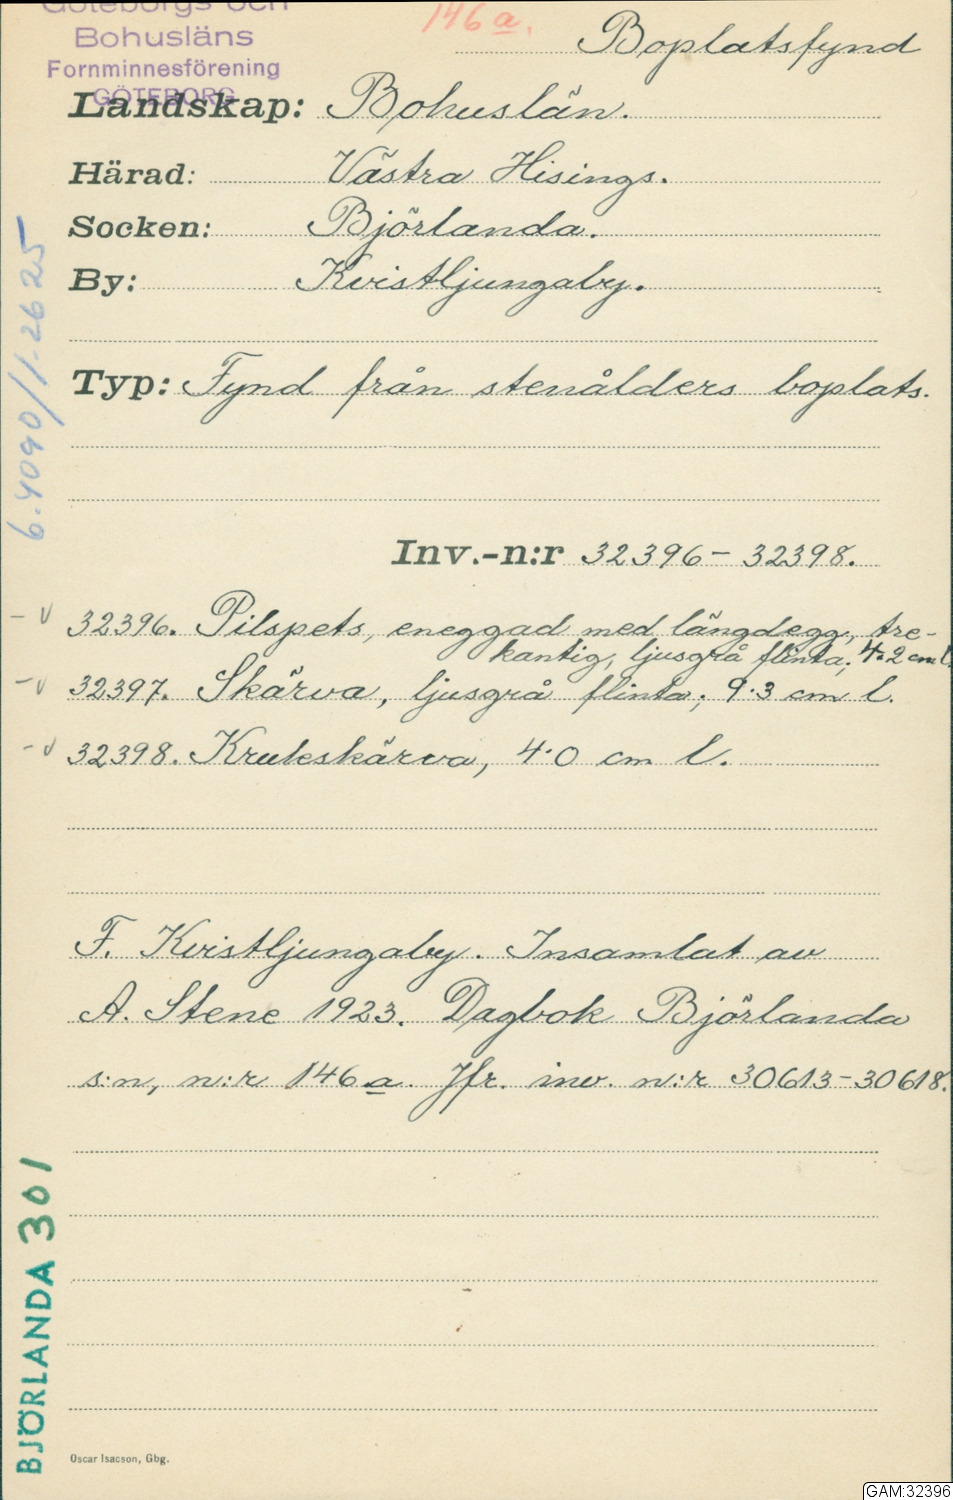 Göteborgs och
Bohusläns
Fornminnesförening
GÖTEBORG
146 a.
Boplatsfynd
Landskap: Bohuslän.
Härad: Västra Hisings.
Socken: Björlanda.
By: Kvistljungaby.
6.4090/1-2625
Typ: Fynd från stenålders boplats.
Inv.-n:r 32396-32398.
- v 32396. Pilspets, eneggad med längdegg, tre-
kantig, ljusgrå flinta; 4.2 cm l.
- v 32397. Skärva, ljusgrå flinta; 9.3 cm l.
- v 32398. Krukskärva, 4.0 cm l.
F. Kvistljungaby. Insamlat av
A. Stene 1923. Dagbok Björlanda
s:n, n:r 146 a. Jfr. inv. n:r 30613-30618.
BJÖRLANDA 301
Oscar Isacson, Gbg.
GAM:32396